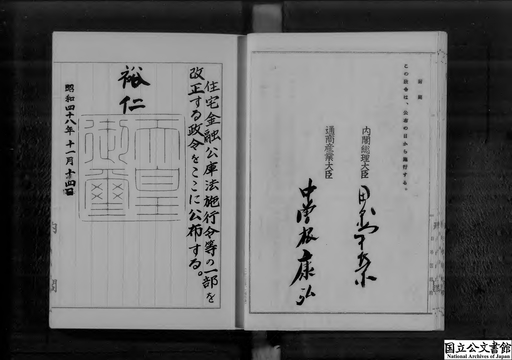 附則
この政令は、公布の日から施行する。
内閣総理大臣 田中角栄
通商産業大臣 中曽根康弘
住宅金融公庫法施行令等の一部を
改正する政令をここに公布する。
裕仁
天皇御璽
昭和四十八年十一月十四日
国立公文書館
National Archives of Japan